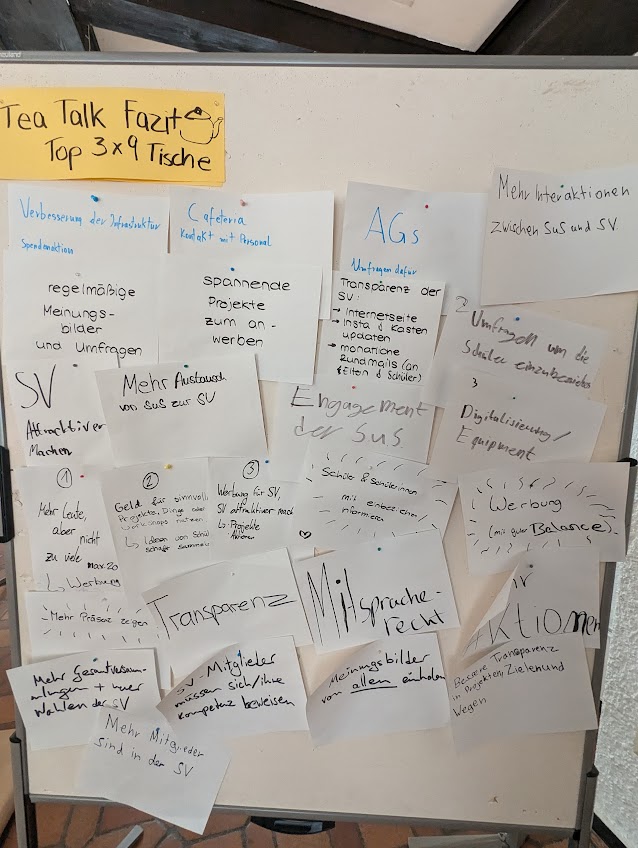 Tea Talk Fazit
Top 3x9 Tische
Verbesserung der Infrastruktur
Spendenaktion
Cafeteria
Kontakt mit Personal
AGs
Umfragen dafür
Mehr Interaktionen
zwischen SuS und SV
regelmäßige
Meinungs-
bilder
und Umfragen
spannende
Projekte
zum an-
werben
Transparenz der
SV:
→ Internetseite
→ Insta & Kasten
updaten
→ monatliche
Rundmails (an
Eltern & Schüler)
2
Umfragen um die
Schüler einzubeziehen
SV
Attraktiver
Machen
Mehr Austausch
von SuS zur SV
Engagement
der SuS
3
Digitalisierung/
Equipment
1
Mehr Leute,
aber nicht
zu viele max. 20
↳ Werbung
2
Geld für sinnvoll
Projekte, Dinge oder
Workshops
↳ Ideen von Schül
schaft sammeln
3
Werbung für SV,
SV attraktiver mach
↳ Projekte
Aktionen
Schüler & Schülerinnen
mit einbeziehen
informieren
Werbung
(mit guter Balance)
Mehr Präsenz zeigen
Transparenz
Mitsprache-
recht
Aktionen
Mehr Gesamtversam-
mlungen +
Wahlen der SV
SV-Mitglieder
müssen sich/ihre
Kompetenz beweisen
Meinungsbilder
von allen einholen
Bessere Transparenz
in Projekten, Zielen und
Wegen
Mehr Mitglieder
sind in der SV